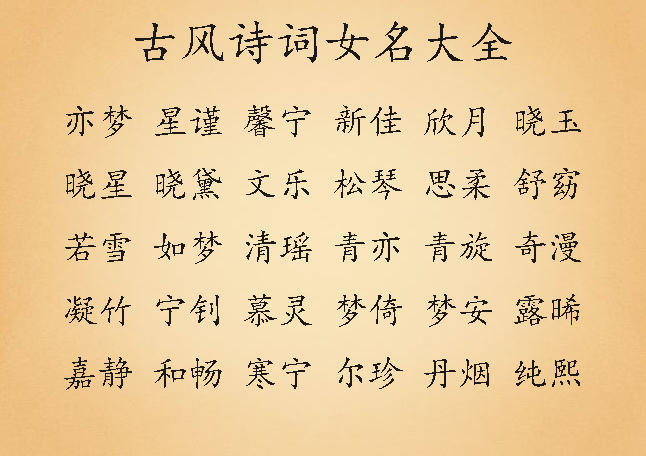 古风诗词女名大全
亦梦 星谨 馨宁 新佳 欣月 晓玉
晓星 晓黛 文乐 松琴 思柔 舒窈
若雪 如梦 清瑶 青亦 青旋 奇漫
凝竹 宁钊 慕灵 梦倚 梦安 露晞
嘉静 和畅 寒宁 尔珍 丹烟 纯熙